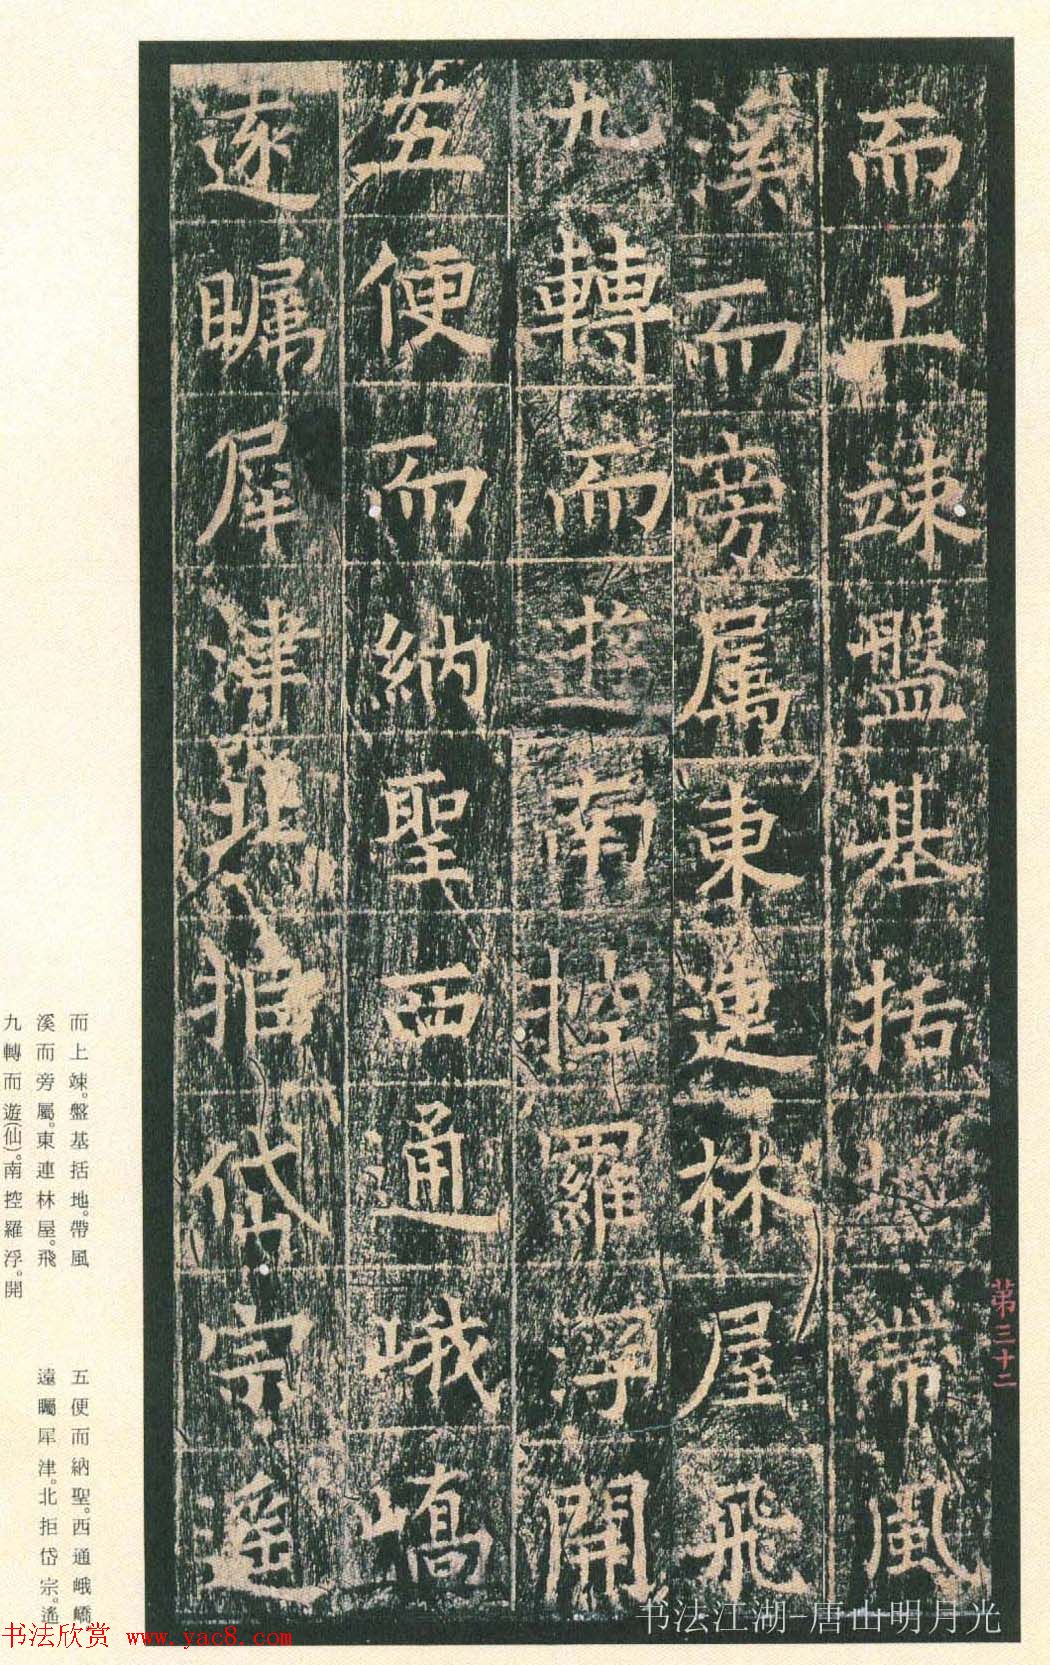 而上竦盤基括地帶風
溪而旁属東連林屋飛
九轉而遊南控羅浮開
五便而納聖西通峨嶠
逺矚犀津北拒岱宗遙
苐三十二
而上竦。盤基括地。帶風
溪而旁屬。東連林屋。飛
九轉而遊(仙)。南控羅浮。開
五便而納聖。西通峨嶠。
遠矚犀津。北拒岱宗。遙
书法欣赏 www.yac8.com
书法江湖-唐山明月光